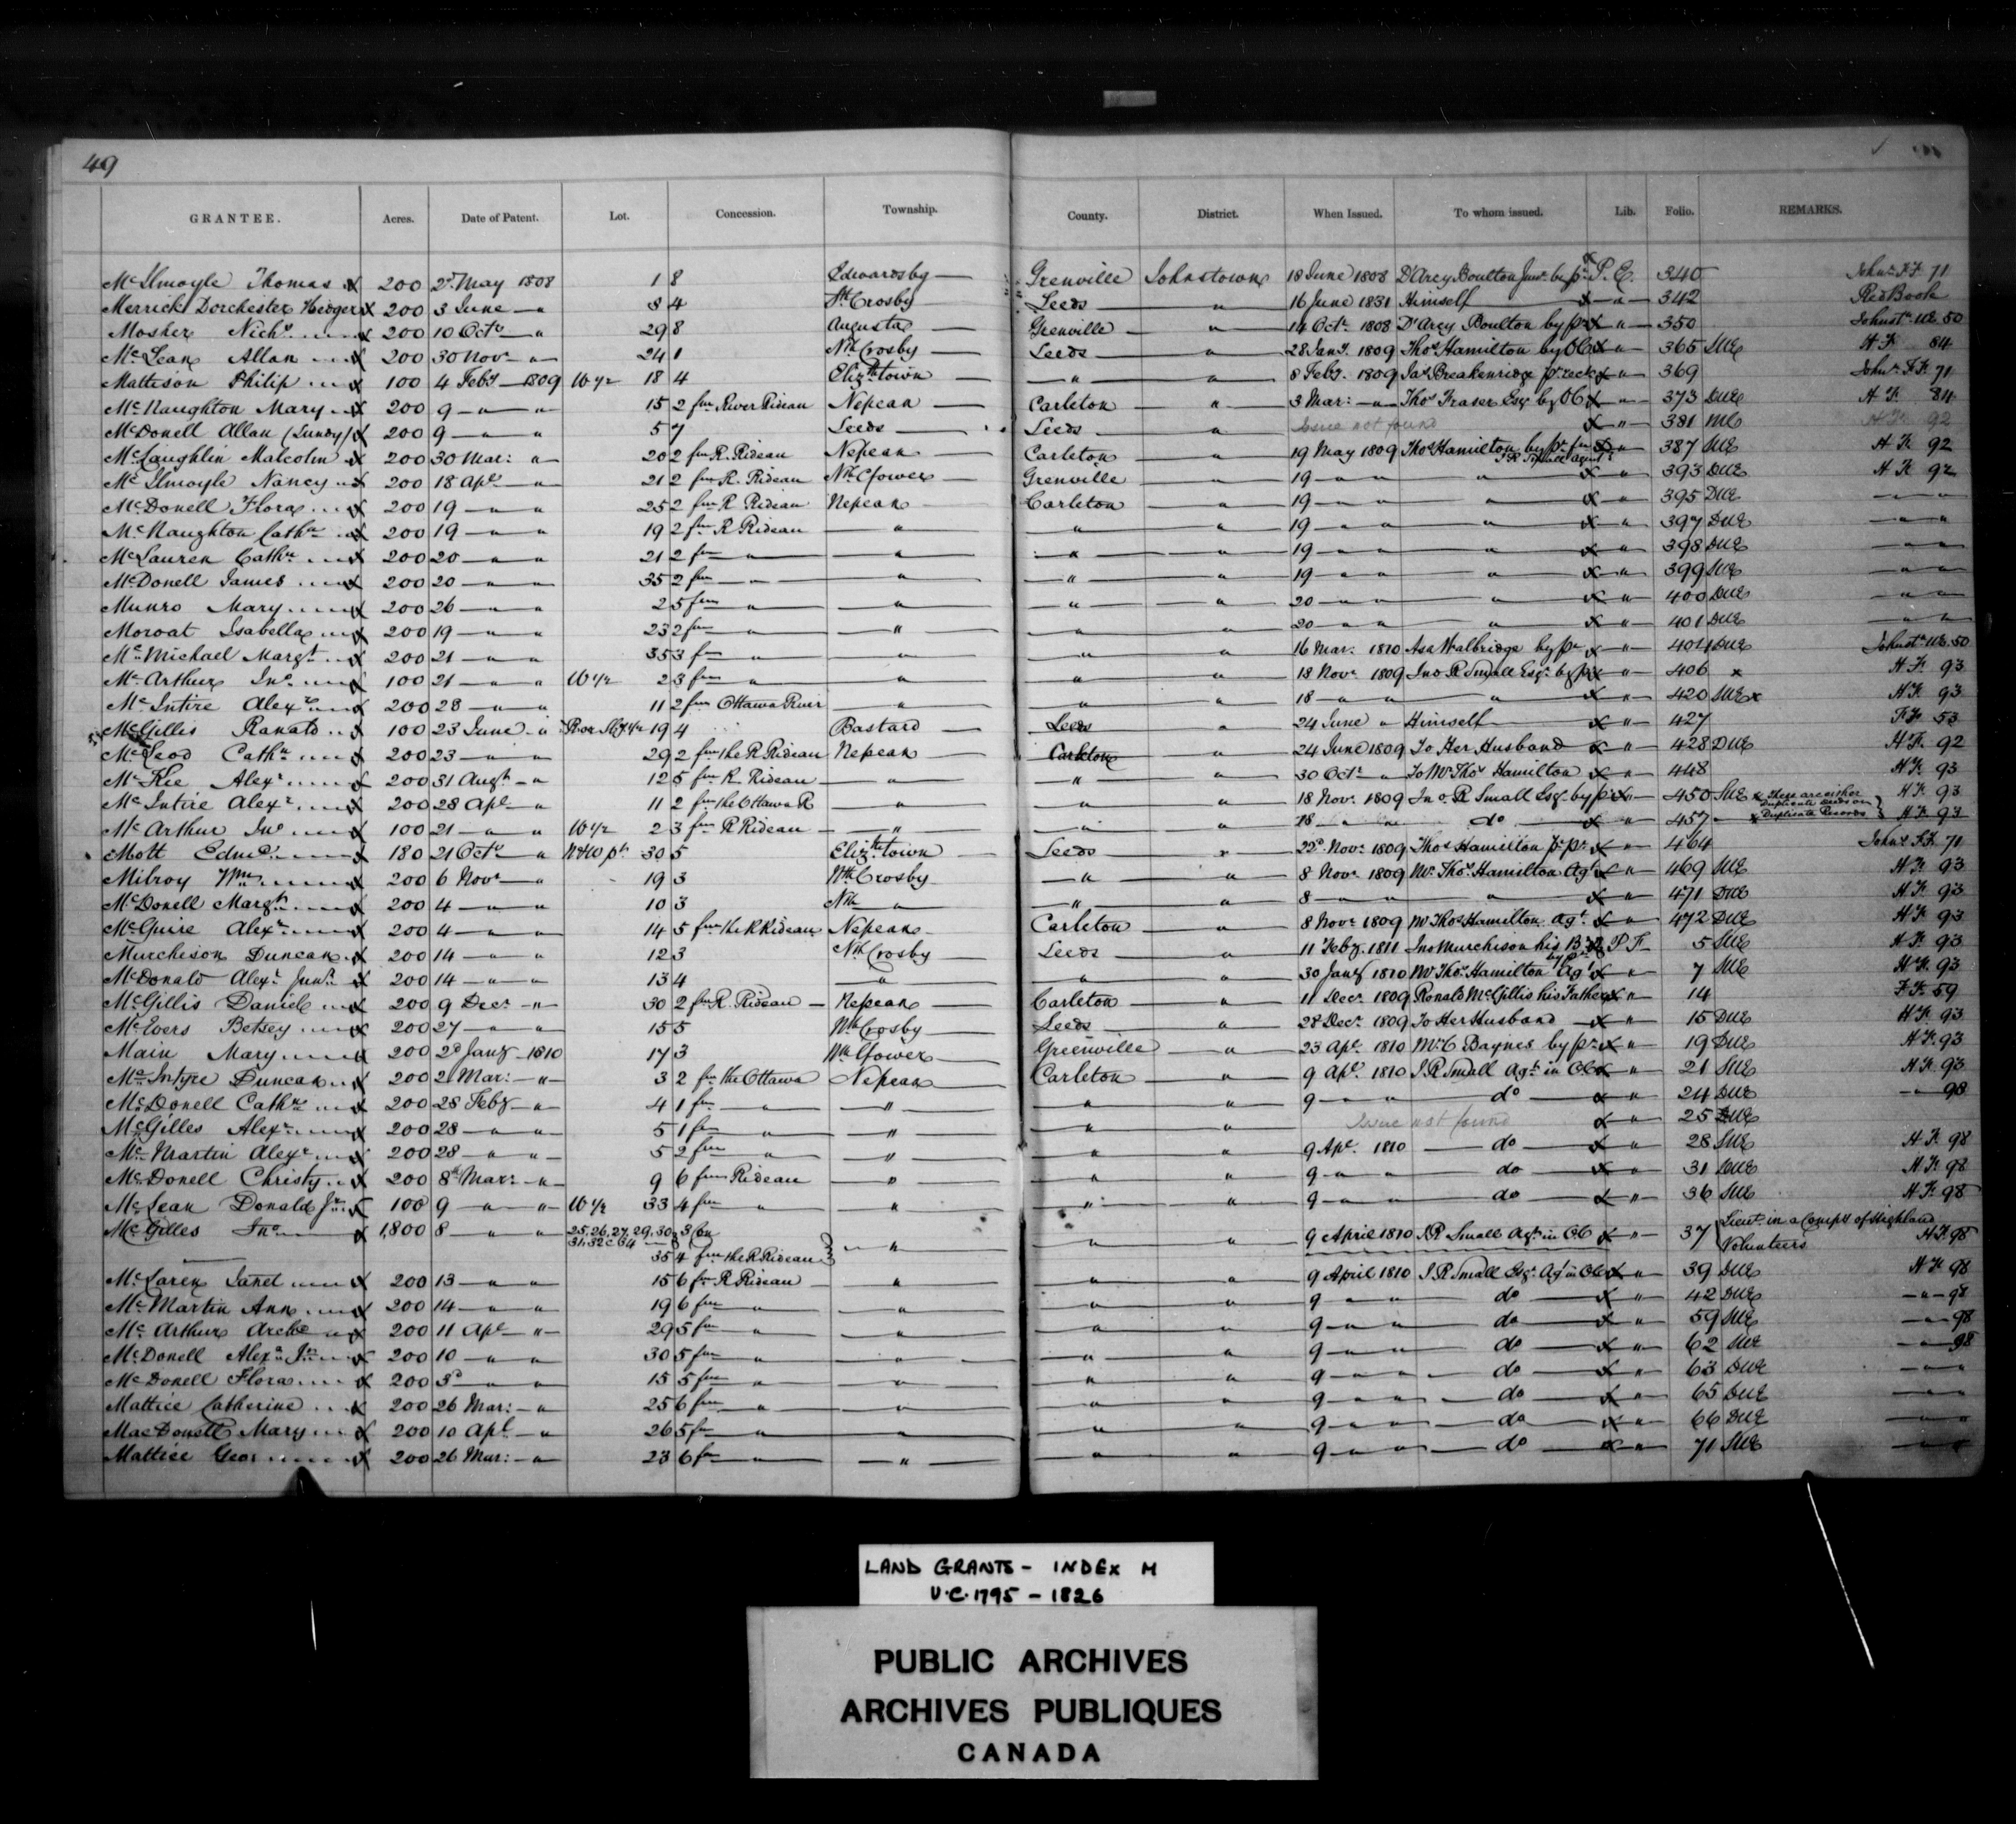 49
GRANTEE. Acres. Date of Patent. Lot. Concession. Township. County. District. When Issued. To whom issued. Lib. Folio. REMARKS.
McIlmoyle Thomas 200 2d May 1808 1 8 Edwardsby Grenville Johnstown 18 June 1808 D'Arcy Boulton Junr by pr P. E. 340 Johnn FF 71
Merrick Dorchester Hedger 200 3 June " 8 4 Sth Crosby Leeds " 16 June 1831 Himself " 342 Red Book
Mosher Nichs 200 10 Octr " 29 8 Augusta Grenville " 14 Octr 1808 D'Arcy Boulton by pr " 350 Johnstn UE 50
McLean Allan 200 30 Novr " 24 1 Nth Crosby Leeds " 28 Jany. 1809 Thos Hamilton by OC " 365 SUE HF 84
Mattison Philip 100 4 Feby 1809 W 1/2 18 4 Elizthtown " " 8 Feby. 1809 Jas Breakenridge pr reck " 369 Johnn FF 71
McNaughton Mary 200 9 " " 15 2 fm River Rideau Nepean Carleton " 3 Mar: " Thos Fraser Esqr by OC " 373 DUE HF 84
McDonell Allan (Lundy) 200 9 " " 5 7 Leeds Leeds " Issue not found " 381 ME HF 92
McLaughlin Malcolm 200 30 Mar: " 20 2 fm R. Rideau Nepean Carleton " 19 May 1809 Thos Hamilton by pr fm J R Small agent " 387 SUE HF 92
McIlmoyle Nancy 200 18 Apl " 21 2 fm R. Rideau Nth Gower Grenville " 19 " " " " 393 DUE HF 92
McDonell Flora 200 19 " " 25 2 fm R Rideau Nepean Carleton " 19 " " " " 395 DUE "
McNaughton Cathn 200 19 " " 19 2 fm R Rideau " " " 19 " " " " 397 DUE "
McLauren Cathn 200 20 " " 21 2 fm " " " " 19 " " " " 398 DUE "
McDonell James 200 20 " " 35 2 fm " " " " 19 " " " " 399 SUE "
Munro Mary 200 26 " " 2 5 fm " " " " 20 " " " " 400 DUE "
Moroat Isabella 200 19 " " 23 2 fm " " " " 20 " " " " 401 DUE "
McMichael Margt 200 21 " " 35 3 fm " " " " 16 Mar. 1810 Asa Walbridge by pr " 404 DUE Johnstn UE 50
McArthur Jno 100 21 " " W 1/2 2 3 fm " " " " 18 Novr 1809 Jno R Small Esqr by pr " 406 x HF 93
McIntire Alexr 200 28 " " 11 2 fm Ottawa River " " " 18 " " " " 420 SUE x HF 93
McGillis Ranald 100 23 June " 19 4 Bastard Leeds " 24 June " Himself " 427 FF 53
McLeod Cathn 200 23 " " 29 2 fm the R Rideau Nepean Carleton " 24 June 1809 To Her Husband " 428 DUE HF 92
McKie Alexr 200 31 Augt " 12 5 fm R Rideau " " " 30 Octr " To Mr Thos Hamilton " 448 HF 93
McIntire Alexr 200 28 Apl " 11 2 fm the Ottawa R " " " 18 Novr 1809 Jno R Small Esqr by pr " 450 SUE x these are either Duplicate deeds or HF 93
McArthur Jno 100 21 " " W 1/2 2 3 fm R Rideau " " " 18 " " do " 457 x Duplicate Records HF 93
Mott Edmd 180 21 Octr " NW pt 30 5 Elizthtown Leeds " 22d Novr 1809 Thos Hamilton pr pr " 464 Johnn FF 71
Milroy Wm 200 6 Novr " 19 3 Nth Crosby " " 8 Novr 1809 Mr Thos Hamilton Agt " 469 SUE HF 93
McDonell Margt 200 4 " 10 3 Nth " " " 8 " " " " 471 DUE HF 93
McGuire Alexr 200 4 " " 14 5 fm the R Rideau Nepean Carleton " 8 Novr 1809 Mr Thos Hamilton Agt. " 472 DUE HF 93
Murchison Duncan 200 14 " " 12 3 Nth Crosby Leeds " 11 Feby. 1811 Jno Murchison his Br by pr P F 5 SUE HF 93
McDonald Alexr Junr 200 14 " " 13 4 " " " 30 Jany 1810 Mr Thos Hamilton Agt " 7 SUE HF 93
McGillis Daniel 200 9 Decr " 30 2 fm R. Rideau Nepean Carleton " 11 Decr 1809 Ronald McGillis his Father " 14 FF 59
McEvers Betsey 200 27 " " 15 5 Nth Crosby Leeds " 28 Decr 1809 To Her Husband " 15 DUE HF 93
Main Mary 200 2d Jany 1810 17 3 Nth Gower Greenville " 23 Apl 1810 Mr C Baynes by pr " 19 DUE HF 93
McIntyre Duncan 200 2 Mar: " 3 2 fm the Ottawa Nepean Carleton " 9 Apl 1810 J R Small Agt in OC " 21 SUE HF 93
McDonell Cathn 200 28 Feby " 4 1 fm " " " " 9 " " do " 24 DUE " 98
McGilles Alexr 200 28 " " 5 1 fm " " " " Issue not found " 25 SUE
McMartin Alexr 200 28 " " 5 2 fm " " " " 9 Apl 1810 do " 28 SUE HF 98
McDonell Christy 200 8th Mar: " 9 6 fm Rideau " " " 9 " " do " 31 DUE HF 98
McLean Donald Jr 100 9 " " W 1/2 33 4 fm " " " 9 " " do " 36 SUE HF 98
McGilles Jno 1,800 8 " " 25,26,27,29,30, 31,32 & 34 3 Con " " " 9 April 1810 J.R Small Agt in OC " 37 Lieut. in a Compy of Highland Volunteers HF 98
35 4 fm the R Rideau
McLaren Janet 200 13 " " 15 6 fm R Rideau " " " 9 April 1810 J R Small Esqr Agt in OC " 39 DUE HF 98
McMartin Ann 200 14 " " 19 6 fm " " " " 9 " " do " 42 DUE " 98
McArthur Archd 200 11 Apl " 29 5 fm " " " " 9 " " do " 59 SUE " 98
McDonell Alexr Jr 200 10 " " 30 5 fm " " " " 9 " " do " 62 SUE " 98
McDonell Flora 200 3d " " 15 5 fm " " " " 9 " " do " 63 DUE "
Mattice Catherine 200 26 Mar: " 25 6 fm " " " " 9 " " do " 65 DUE "
MacDonell Mary 200 10 Apl " 26 5 fm " " " " 9 " " do " 66 DUE "
Mattice Geo: 200 26 Mar: " 23 6 fm " " " " 9 " " do " 71 SUE "
LAND GRANTS - INDEX M
U.C. 1795 - 1826
PUBLIC ARCHIVES
ARCHIVES PUBLIQUES
CANADA